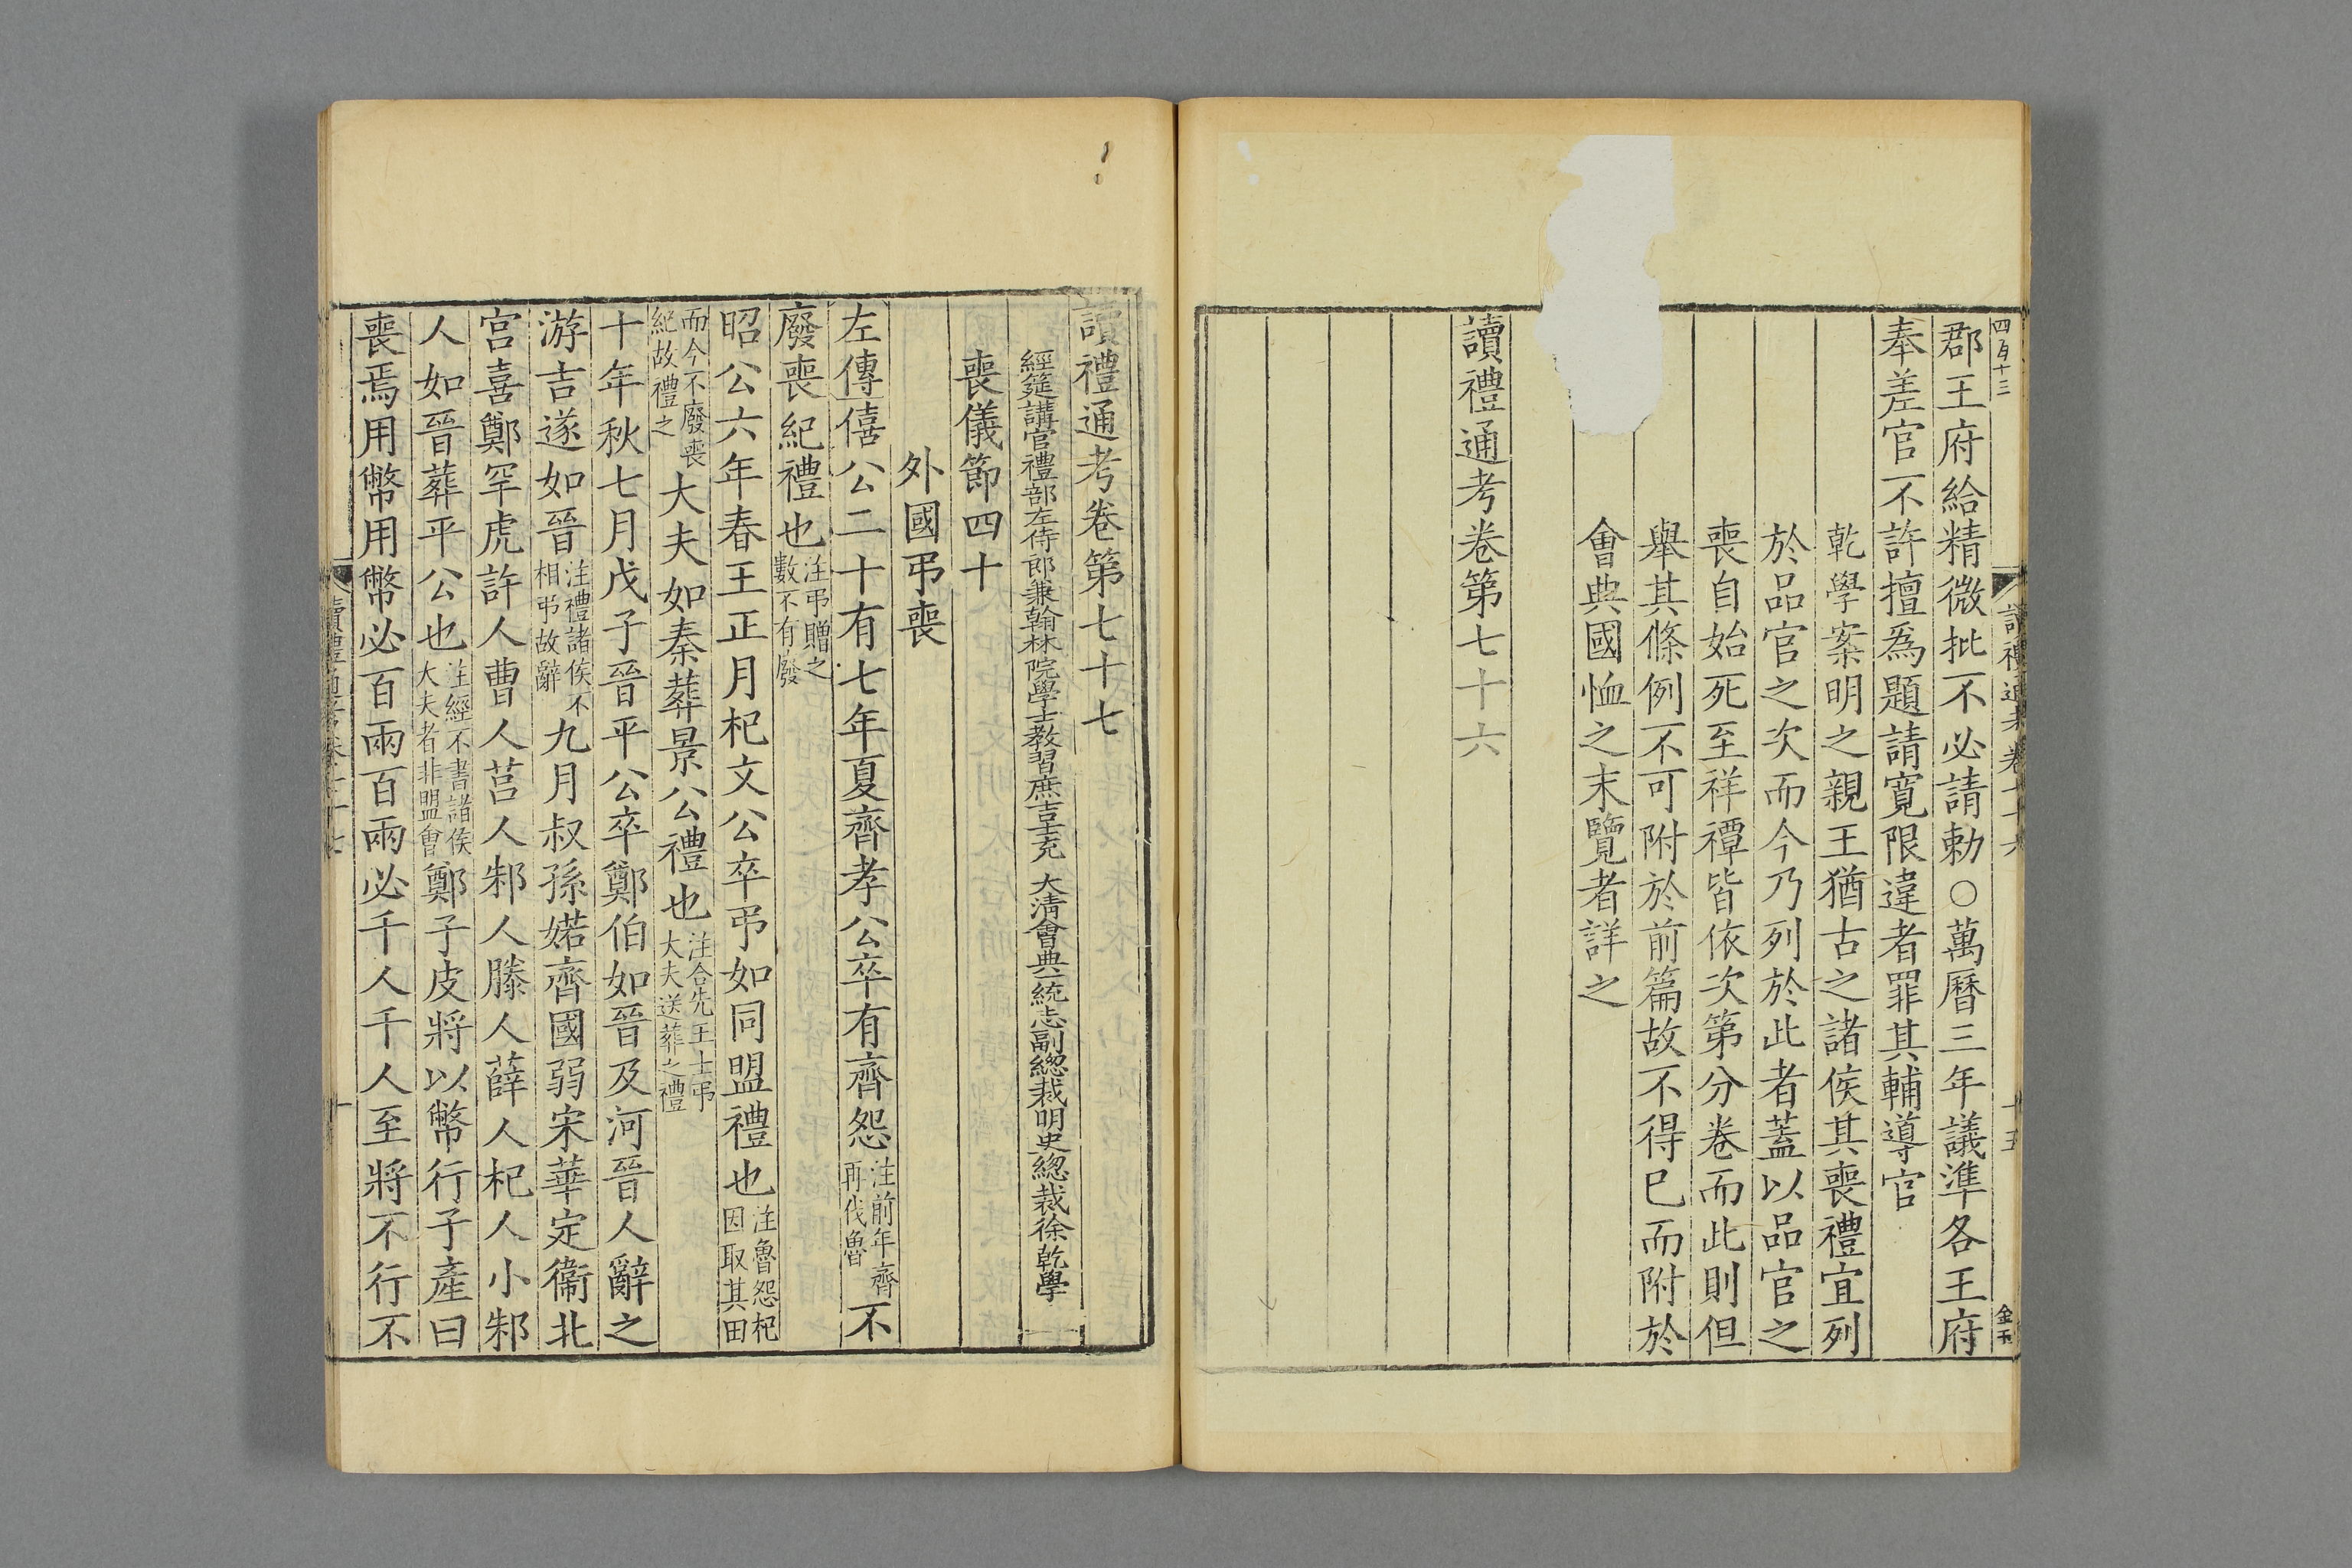 四百十三
讀禮通考卷七十六
十五
金玉
郡王府給精微批不必請勅○萬曆三年議準各王府
奉差官不許擅為題請寬限違者罪其輔導官
乾學案明之親王猶古之諸侯其喪禮宜列
於品官之次而今乃列於此者蓋以品官之
喪自始死至祥禫皆依次第分卷而此則但
舉其條例不可附於前篇故不得已而附於
會典國恤之末覽者詳之
讀禮通考卷第七十六
讀禮通考卷第七十七
經筵講官禮部左侍郎兼翰林院學士教習庶吉士充 大清會典一統志副總裁明史總裁徐乾學
喪儀節四十
外國弔喪
左傳僖公二十有七年夏齊孝公卒有齊怨注前年齊再伐魯不
廢喪紀禮也注弔贈之數不有廢
昭公六年春王正月杞文公卒弔如同盟禮也注魯怨杞因取其田
而今不廢喪紀故禮之大夫如秦葬景公禮也注合先王士弔大夫送葬之禮
十年秋七月戊子晉平公卒鄭伯如晉及河晉人辭之
游吉遂如晉注禮諸侯不相弔故辭九月叔孫婼齊國弱宋華定衞北
宫喜鄭罕虎許人曹人莒人邾人滕人薛人杞人小邾
人如晉葬平公也注經不書諸侯大夫者非盟會鄭子皮將以幣行子產曰
喪焉用幣用幣必百兩百兩必千人千人至將不行不
讀禮通考卷七十七
一